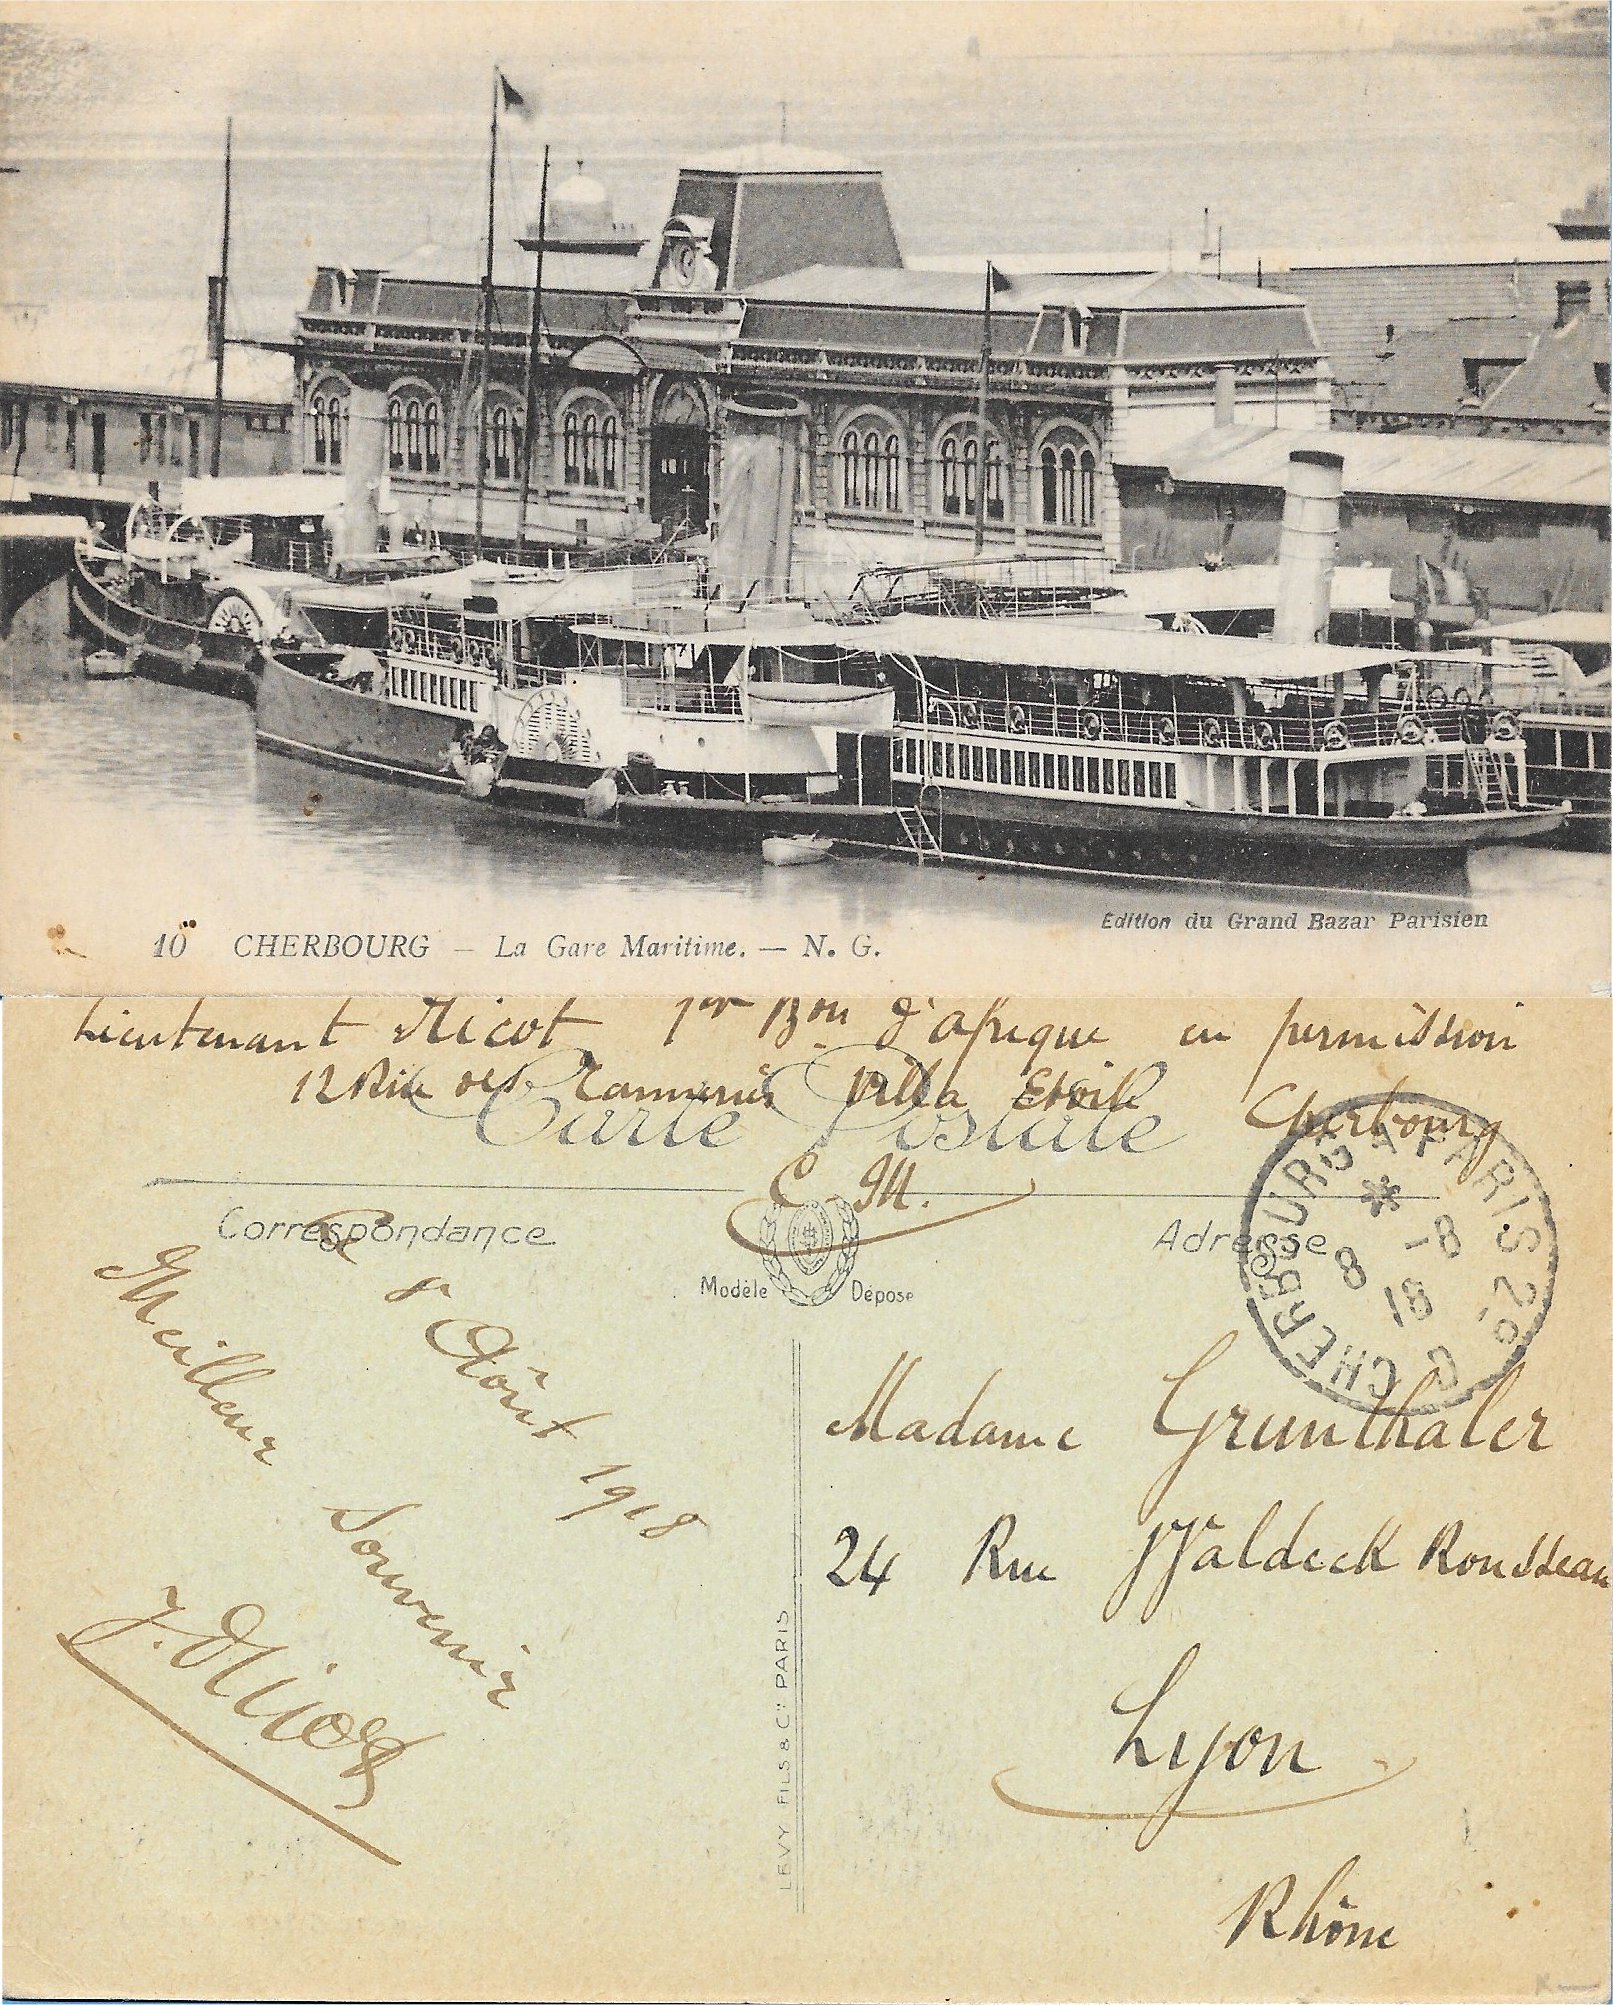 Edition du Grand Bazar Parisien
10 CHERBOURG — La Gare Maritime. — N. G.
Lieutenant Nicot 1er Bon d'afrique en permission
12 Rue des Tanneries Villa Etoile Cherbourg
Carte Postale
C. M.
Correspondance
Adresse
Modèle Déposé
CHERBOURG A PARIS 2°
8 -8
18
Le 8 Août 1918
Meilleur Souvenir
J. Nicot
Madame Grunthaler
24 Rue Waldeck Rousseau
Lyon
Rhône
LEVY FILS & Cie PARIS